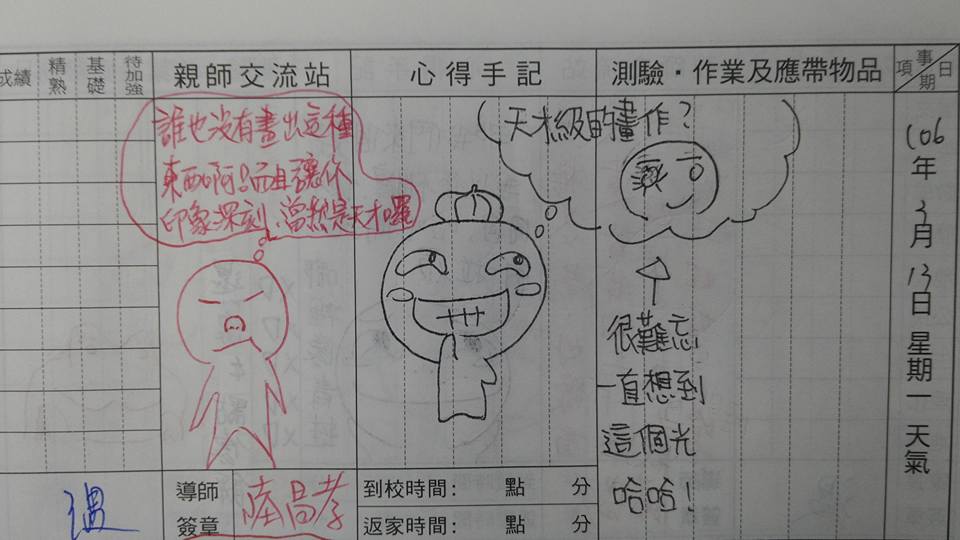 日期
事項
106年3月13日星期一 天氣
測驗・作業及應帶物品
天才級的畫作?
很難忘
一直想到
這個光
哈哈!
心得手記
到校時間: 點 分
返家時間: 點 分
親師交流站
誰也沒有畫出這種
東西啊 而且讓你
印象深刻,當然是天才囉
導師
簽章
昌孝
待加強
基礎
精熟
成績